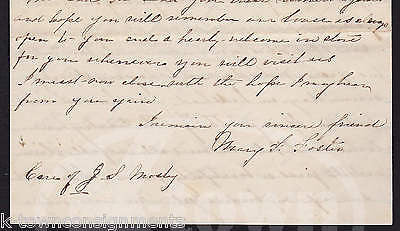 and hope you will remember our house is always
open to you and a hearty welcome in store
for you whenever you will visit us
I must now close with the hope I may hear
from you
I remain your sincere friend
Mary F. Foster
Care of J S Mosby
k-townconsignments